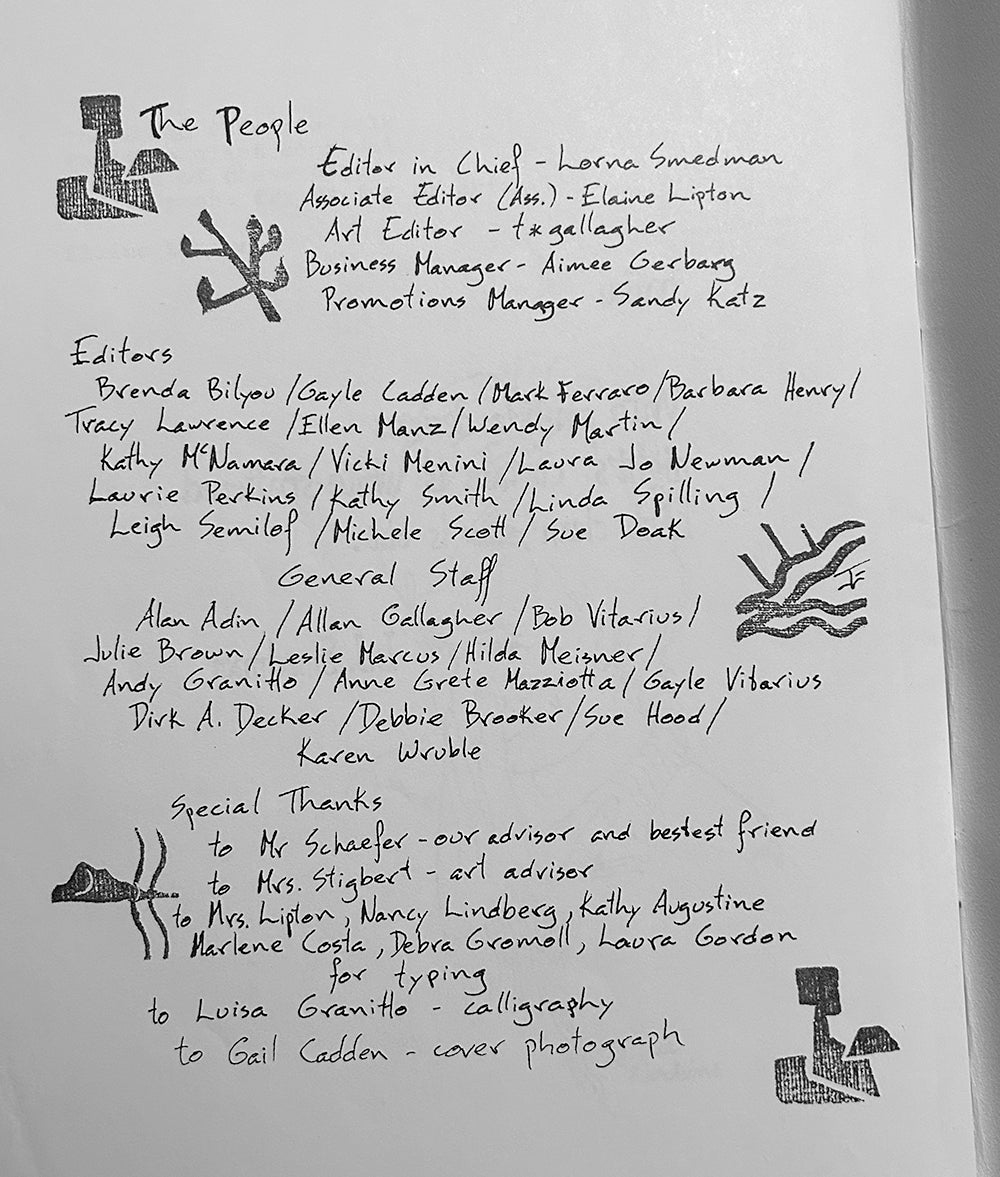 The People
Editor in Chief - Lorna Smedman
Associate Editor (Ass.) - Elaine Lipton
Art Editor - t*gallagher
Business Manager - Aimee Gerbarg
Promotions Manager - Sandy Katz
Editors
Brenda Bilyou / Gayle Cadden / Mark Ferraro / Barbara Henry /
Tracy Lawrence / Ellen Manz / Wendy Martin /
Kathy McNamara / Vicki Menini / Laura Jo Newman /
Laurie Perkins / Kathy Smith / Linda Spilling /
Leigh Semilof / Michele Scott / Sue Doak
General Staff
Alan Adin / Allan Gallagher / Bob Vitarius /
Julie Brown / Leslie Marcus / Hilda Meisner /
Andy Granitto / Anne Grete Mazziotta / Gayle Vitarius
Dirk A. Decker / Debbie Brooker / Sue Hood /
Karen Wruble
Special Thanks
to Mr Schaefer - our advisor and bestest friend
to Mrs. Stigbert - art advisor
to Mrs. Lipton, Nancy Lindberg, Kathy Augustine
Marlene Costa, Debra Gromoll, Laura Gordon
for typing
to Luisa Granitto - calligraphy
to Gail Cadden - cover photograph